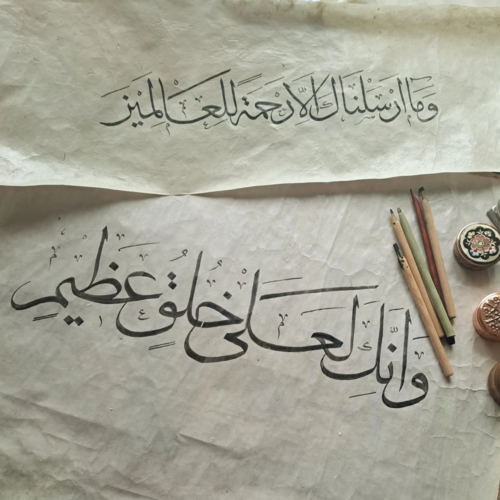 وَمَا أَرْسَلْنَاكَ إِلَّا رَحْمَةً لِلْعَالَمِينَ
وَإِنَّكَ لَعَلَى خُلُقٍ عَظِيمٍ